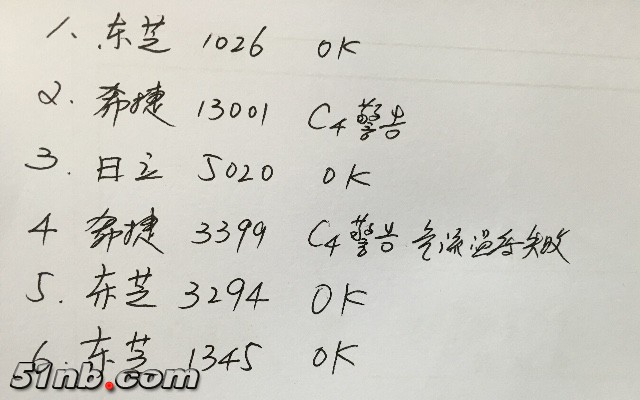 1、东芝 1026 OK
2. 希捷 13001 C4警告
3. 日立 5020 OK
4 希捷 3399 C4警告 气流温度失败
5. 东芝 3294 OK
6. 东芝 1345 OK
51nb.com